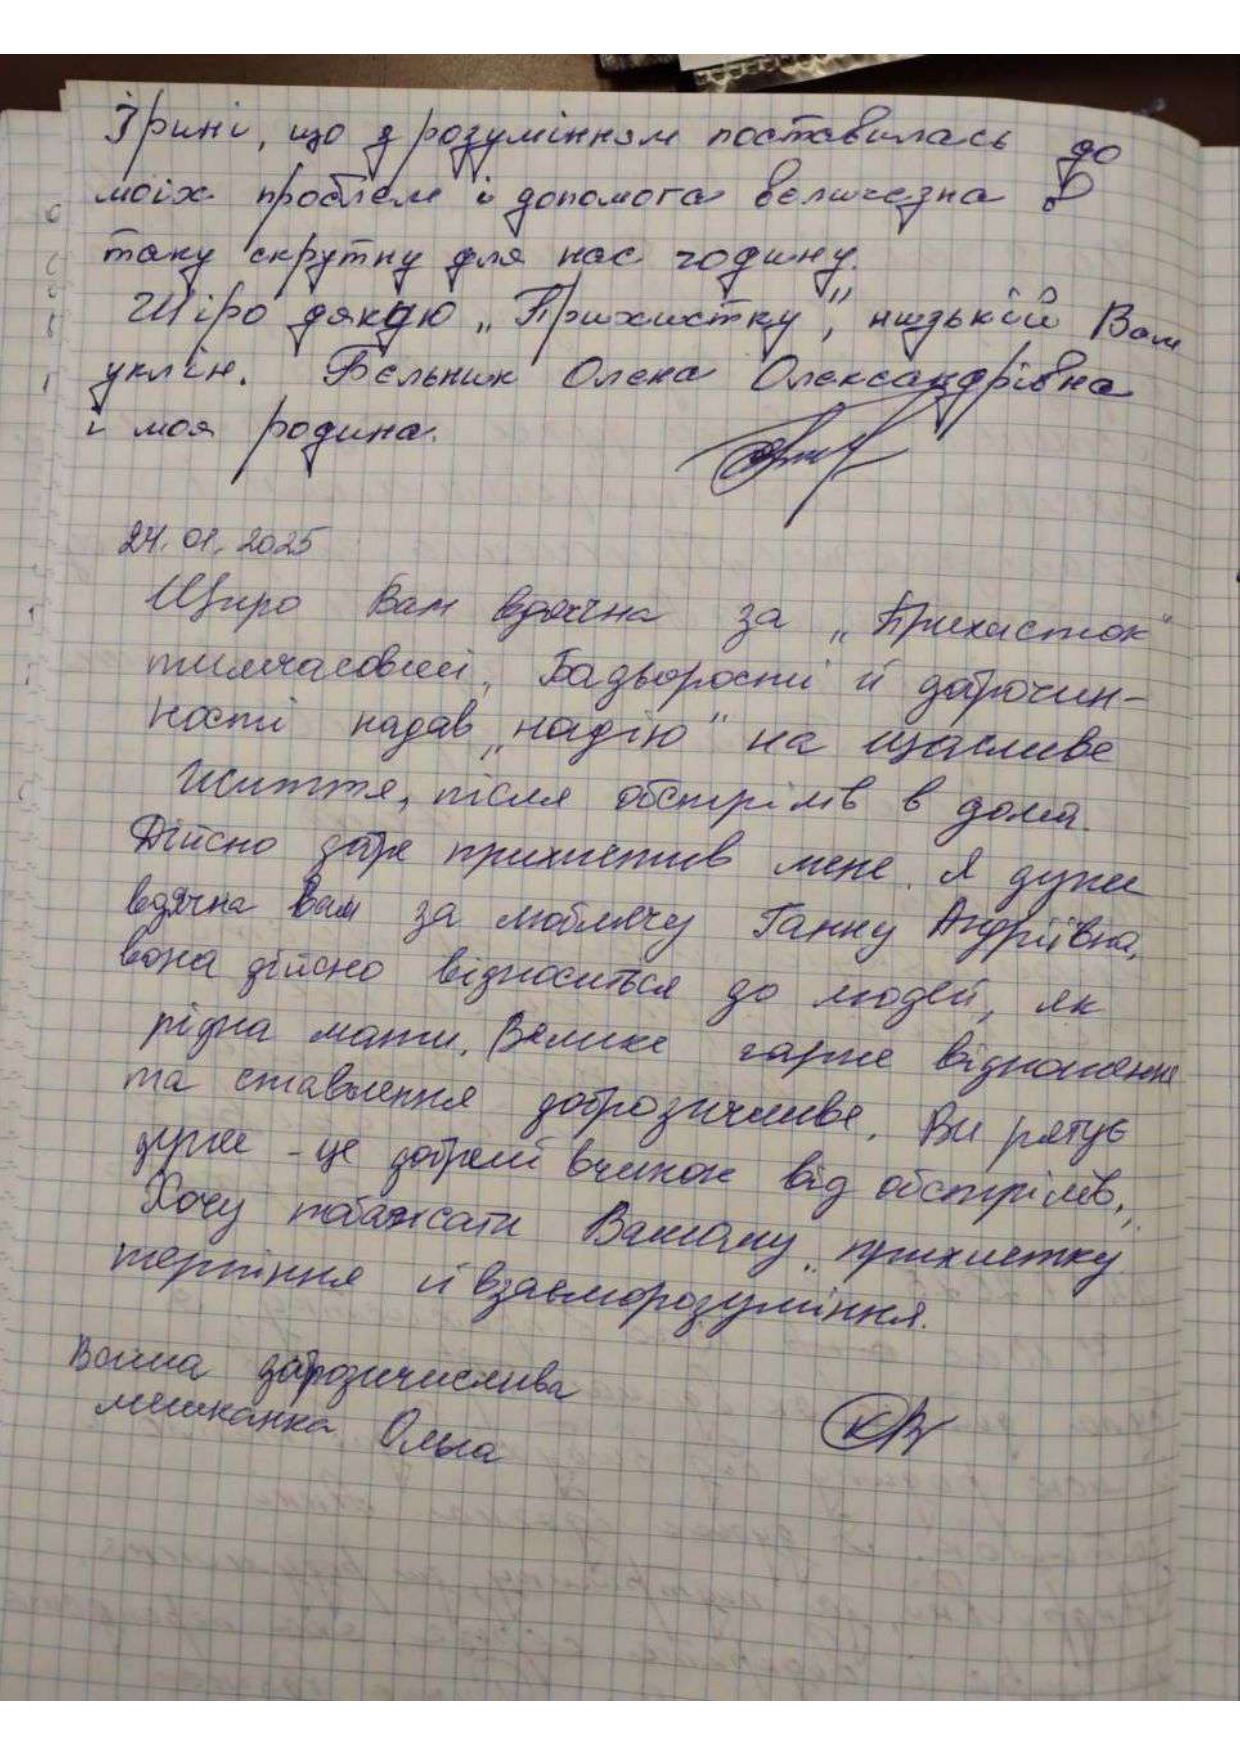 Ірині, що з розумінням поставилась до
моїх проблем і допомога величезна в
таку скрутну для нас годину.
Щіро дякую „Прихистку", низький Вам
уклін. Бельник Олена Олександрівна
і моя родина.
24.01.2025
Щиро Вам вдячна за „Прихисток"
тимчасовий, Бадьорості й доброчин-
ності надав „надію" на щасливе
життя, після обстрілів в домі.
Дійсно добре прихистив мене. Я дуже
вдячна Вам за люблячу Ганну Андріївна,
вона дійсно відноситься до людей, як
рідна мати. Велике гарне відношення
та ставлення доброзичливе. Ви рятує
дуже - це добрий вчинок від обстрілів.
Хочу побажати Вашому „прихистку"
терпіння й взаєморозуміння.
Ваша доброзичислива
мешканка Ольга